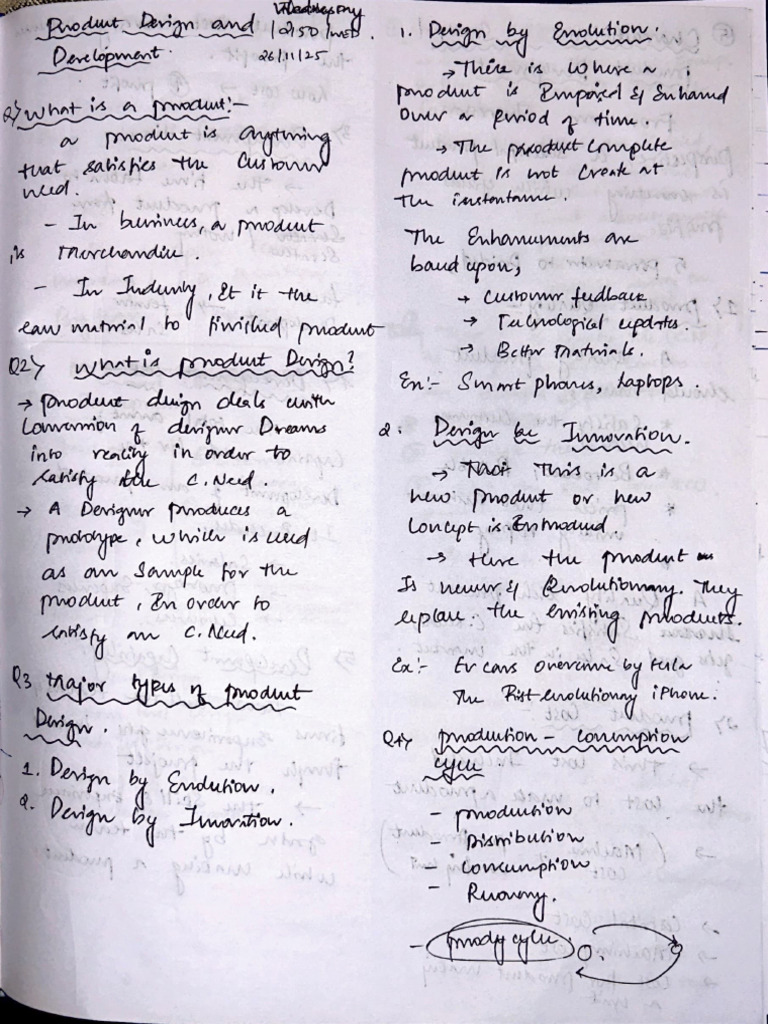 Product Design and
Development.
Wednesday
12:50
26/11/25
Q1) What is a product:-
a product is anything
that satisfies the customer
need.
- In business, a product
is Merchandise.
- In Industry, it the
raw material to finished product
Q2) What is product Design?
→ product design deals with
Conversion of designer Dreams
into reality in order to
satisfy the C. Need.
→ A Designer produces a
prototype, which is used
as an sample for the
product, In order to
satisfy an C. Need.
Q3 Major types of product
Design.
1. Design by Evolution.
2. Design by Innovation.
1. Design by Evolution.
→ There is where a
product is Improved & Enhanced
Over a period of time.
→ The product complete
product is not create at
the instantane.
The Enhancements are
based upon,
→ Customer feedback
→ Technological updates.
→ Better Materials.
Ex:- Smart phones, Laptops.
2. Design by Innovation.
→ This is a
new product or new
Concept is Introduced.
→ Here the product
Is newer & Revolutionary. They
replace the existing products.
Ex:- EV cars overcome by tesla
The first evolutionary iPhone.
Q4) production - consumption
cycle
- production
- Distribution
- Consumption
- Recovery.
- cycle